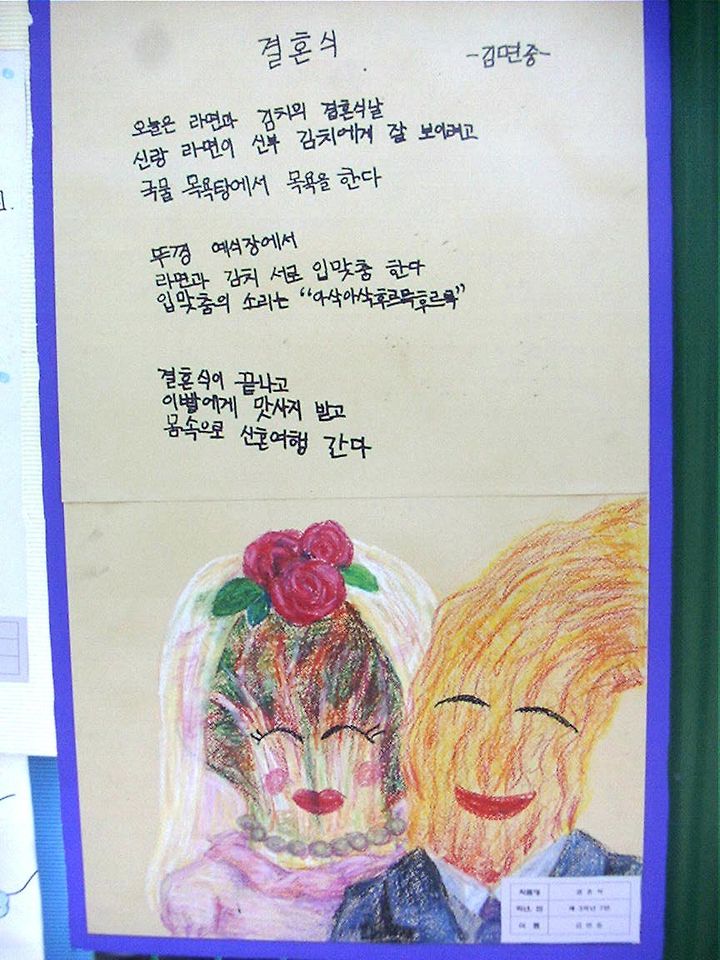 결혼식
-김면중-
오늘은 라면과 김치의 결혼식날
신랑 라면이 신부 김치에게 잘 보이려고
국물 목욕탕에서 목욕을 한다
뚜껑 예식장에서
라면과 김치 서로 입맞춤 한다
입맞춤의 소리는 “아삭아삭후르륵후르륵”
결혼식이 끝나고
이빨에게 맛사지 받고
몸속으로 신혼여행 간다
작품명 결혼식
학년, 반 제 3학년 7반
이름